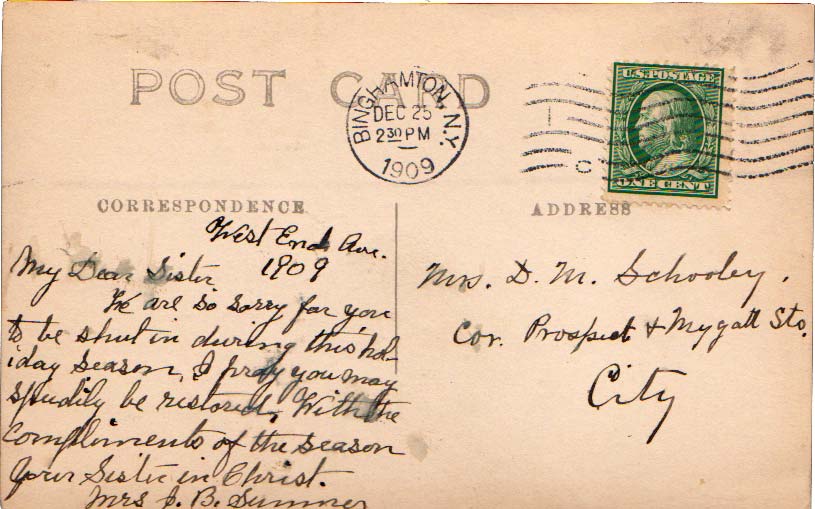 POST CARD
BINGHAMTON, N.Y.
DEC 25
2 30 PM
1909
C
U.S. POSTAGE
ONE CENT
CORRESPONDENCE
ADDRESS
West End Ave.
1909
My Dear Sister
We are so sorry for you
to be shut in during this hol-
iday season, I pray you may
speedily be restored, With the
Compliments of the season
Your Sister in Christ.
Mrs J. B. Sumner
Mrs. D. M. Schooley.
Cor. Prospect & Mygatt Sts.
City